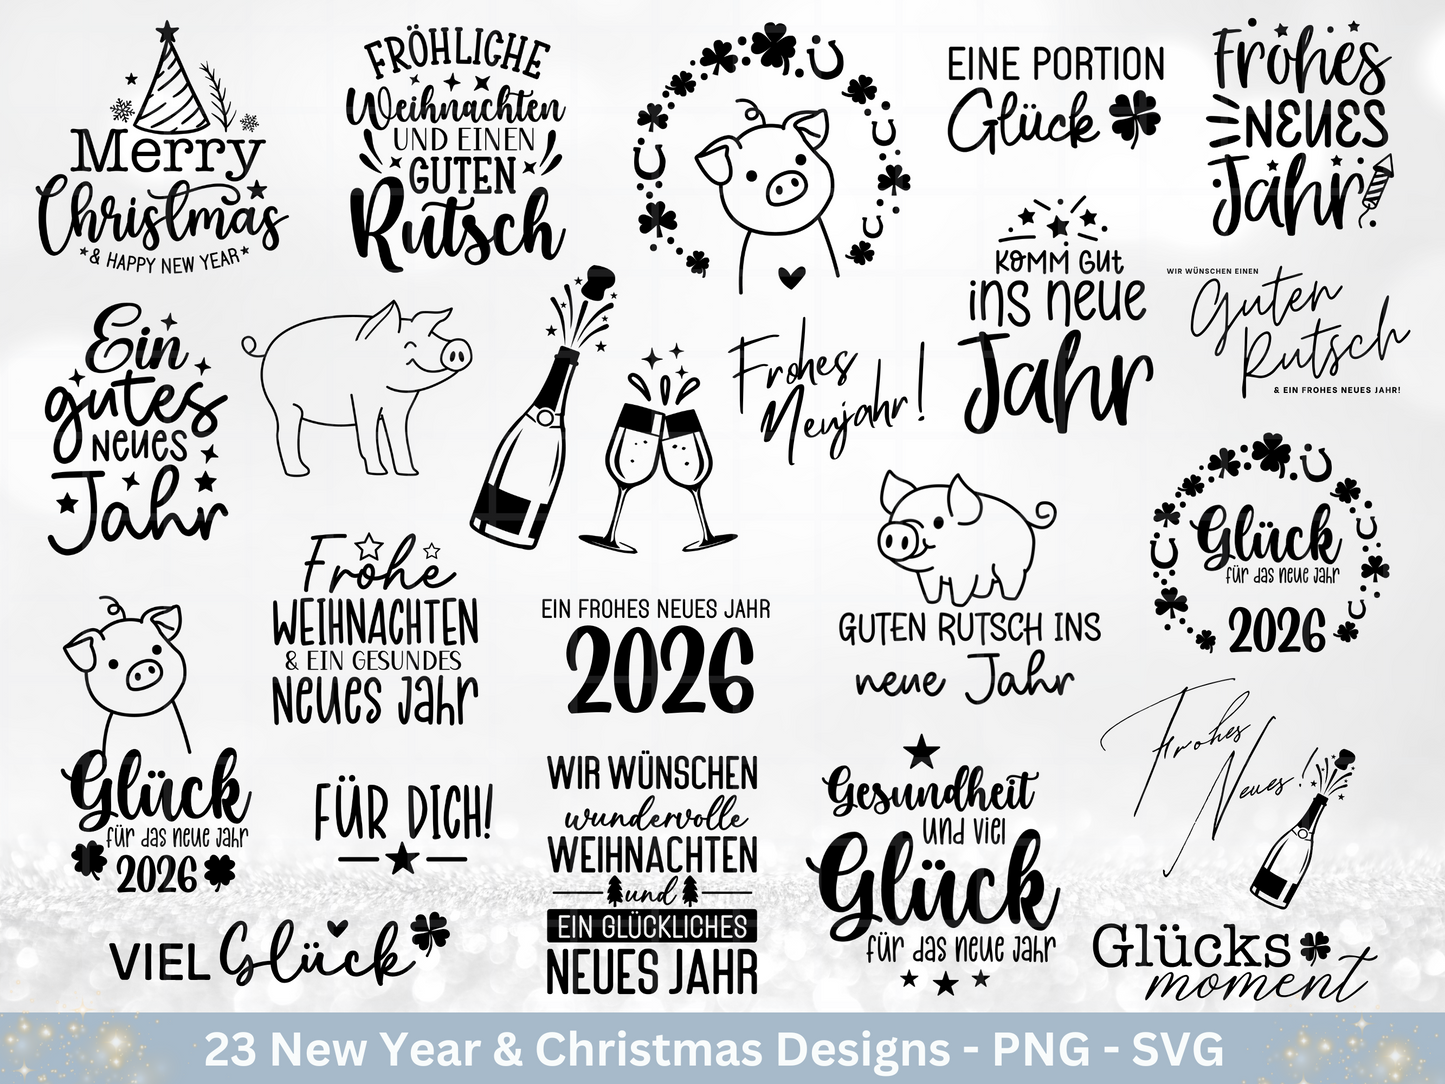 Merry
Christmas
& HAPPY NEW YEAR
FRÖHLICHE
Weihnachten
UND EINEN
GUTEN
Rutsch
EINE PORTION
Glück
Frohes
NEUES
Jahr
Ein
gutes
NEUES
Jahr
Frohes
Neujahr!
KOMM GUT
ins neue
Jahr
WIR WÜNSCHEN EINEN
Guten
Rutsch
& EIN FROHES NEUES JAHR!
Frohe
WEIHNACHTEN
& EIN GESUNDES
NEUES Jahr
EIN FROHES NEUES JAHR
2026
GUTEN RUTSCH INS
neue Jahr
Glück
für das neue Jahr
2026
Glück
für das neue Jahr
2026
FÜR DICH!
WIR WÜNSCHEN
wundervolle
WEIHNACHTEN
und
EIN GLÜCKLICHES
NEUES JAHR
Gesundheit
und viel
Glück
für das neue Jahr
Frohes
Neues!
VIEL Glück
Glücks
moment
23 New Year & Christmas Designs - PNG - SVG